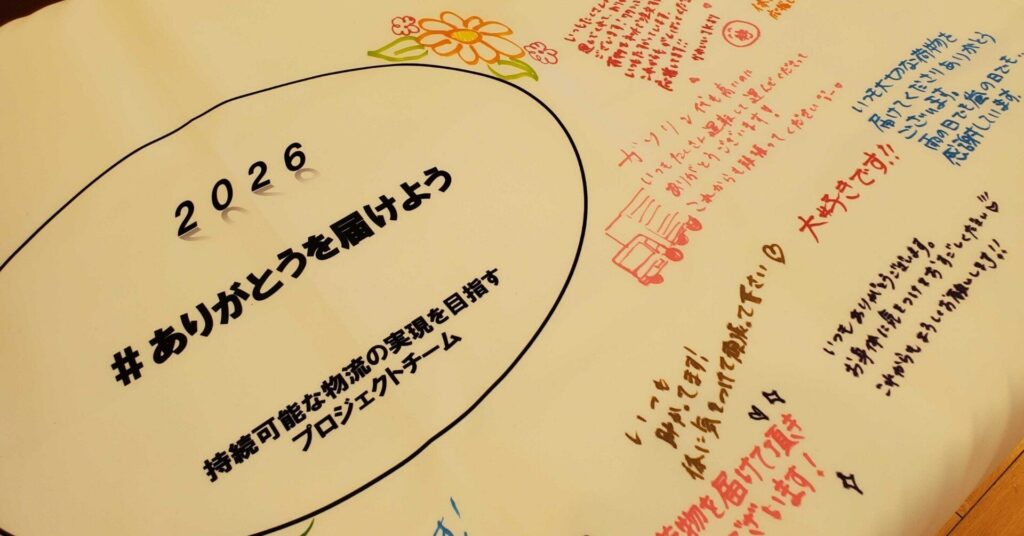 2026
#ありがとうを届けよう
持続可能な物流の実現を目指す
プロジェクトチーム
ガソリン代も高いのに
いつもたくさん運転して運んでくださって
ありがとうございます!!
これからも頑張って ください
いつも大切な荷物を
届けてくださりありがとう
ございます。
雨の日でも嵐の日でも、
感謝しています。
大好きです!!
いつもありがとうございます。
お身体に気をつけておすごしください
これからもよろしくお願いします!!
いつも
助かってます!
体に気をつけて頑張って下さい
荷物を届けて頂き
ございます!
す!